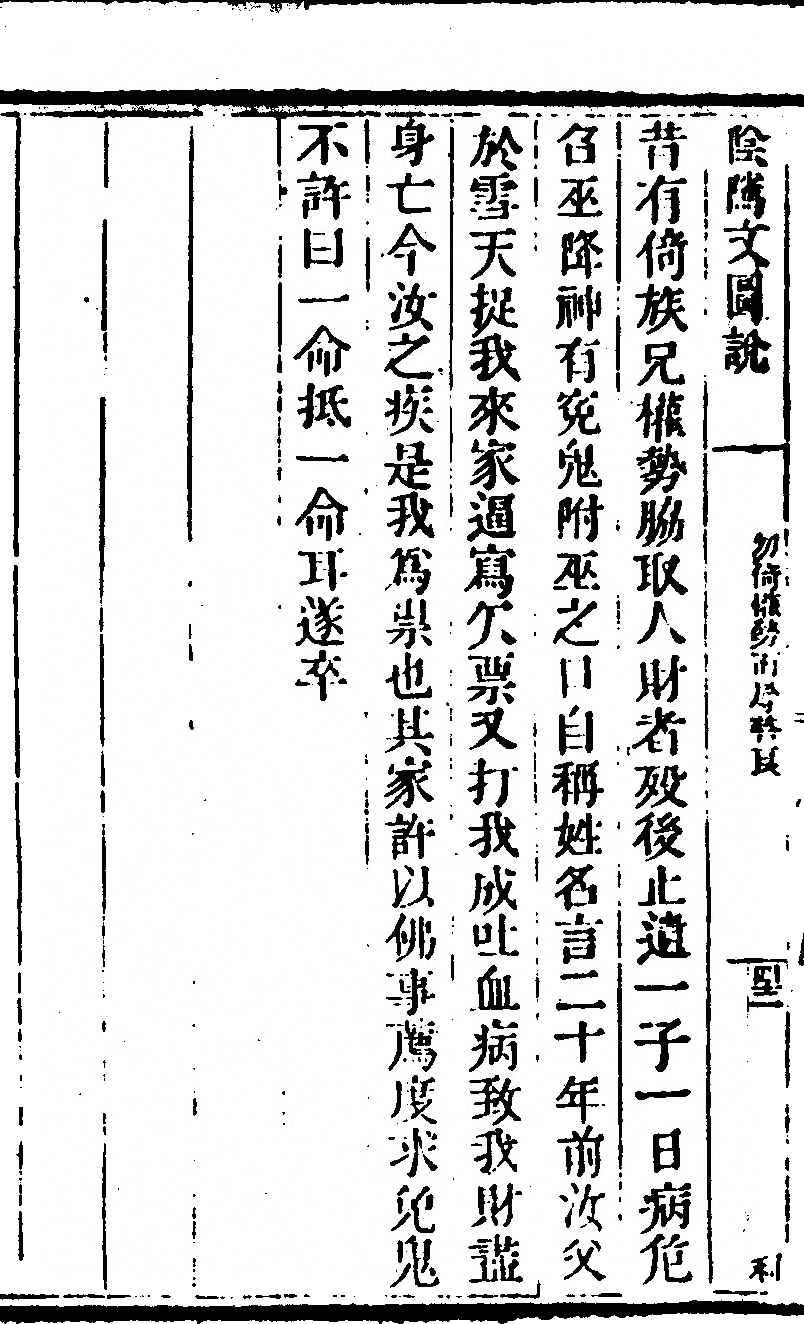 陰隲文圖說
勿倚權勢而辱善良
四一
利
昔有倚族兄權勢脇取人財者歿後止遺一子一日病危
召巫降神有寃鬼附巫之口自稱姓名言二十年前汝父
於雪天捉我來家逼寫欠票又打我成吐血病致我財盡
身亡今汝之疾是我爲祟也其家許以佛事薦度求免鬼
不許曰一命抵一命耳遂卒